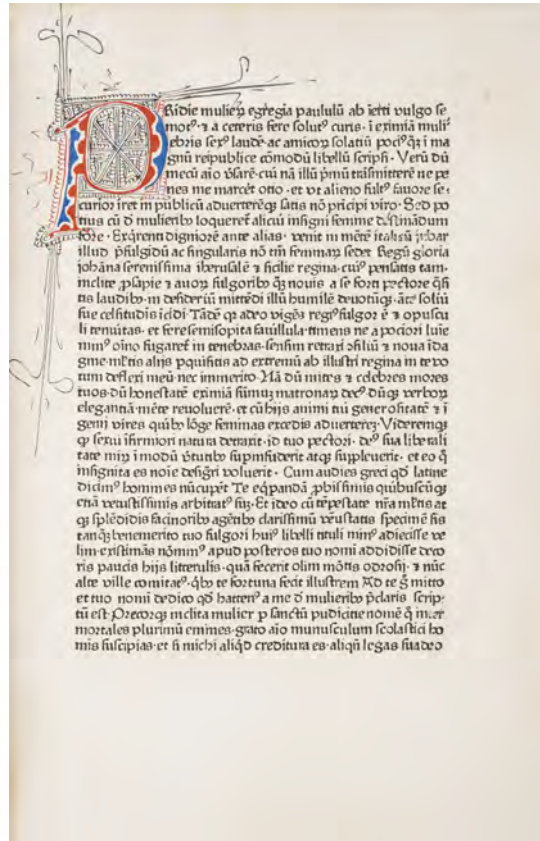 PRidie mulieꝝ egregia paululū ab ierti vulgo se
motꝰ· ⁊ a ceteris fere solutꝰ curis· ī eximiā muliᵉ
ebris sexꝰ laudē· ac amicoꝝ solatiū pociꝰ qͣȝ ī ma
gnū reipublice cōmodū libellū scripsi · Verū dū
mecū aīo v̄sarē· cui nā illū pͥmū trāsmitterē ne pe
nes me marcēt otio · et vt alieno fultꝰ fauore se⸗
curior iret in publicū aduerterēqꝫ satis nō pͥncipi viro · Sed po
tius cū ď mulieribꝰ loqueret̄ alicui insigni femine destinādum
fore · Exq̄renti digniorē ante alias · venit in mētē italicū iubar
illud p̄fulgidū ac singularis nō tm̄ feminaꝝ sedet Regū gloria
iohāna serenissima iherusalē ⁊ sicilie regina· cuiꝰ pensatis tam·
inclite ꝓsapie ⁊ auoꝝ fulgoribꝰ qͣȝ nouis a se forti pectore q̄si
tis laudibꝰ· in desideriū mittēdi illū humilē deuotūqꝫ· āte soliū
sue celsitudīs īcidi Tādē qꝛ adeo vigēs regiꝰ fulgor ē ⁊ opuscu
li tenuitas· et fere semisopita fauillula· timens ne a pociori luīe
minꝰ oīno fugaret̄ in tenebras· sensim retraxi ɔsiliū ⁊ noua īda
gine· ml̄tis alijs pquisitis ad extremū ab illustri regina in te vo
tum deflexi meū· nec immerito· Nā dū mites ⁊ celebres mores
tuos· dū honestatē eximiā sūmūqꝫ matronaꝝ decꝰ dūqꝫ verboꝝ
elegantiā· mēte reuoluerē· et cū hijs animi tui generositatē ⁊ ī
genij vires quibꝰ lōge feminas excedis aduerterē· Videremqꝫ
qͣ sexui īfirmiori natura detraxit· id tuo pectori· deꝰ sua liberali
tate mirꝫ ī modū v̄tutibꝰ suꝑinfuderit atqꝫ suppleuerit· et eo q̄
insignita es noīe desigr̄i voluerit · Cum audres greci qd̄ latine
dicimꝰ homines nūcupēt Te eq̄pandā ꝓbissimis quibuscūqꝫ
etiā vetustissimis arbitratꝰ sū· Et ideo cū tēpestate nr̄a ml̄tis at
qꝫ splēdidis facinoribꝰ agētibꝰ clarissimū vetustatis specimē sis
tanqͣȝ benemerito tuo fulgori huiꝰ libelli tituli minꝰ adiecisse ve
lim· existimās nōminꝰ apud posteros tuo nomī addidisse deco
ris paucis hijs litterulis· quā fecerit olim mōtis odrosij· ⁊ nūc
alte ville comitatꝰ· q̄bꝰ te fortuna fecit illustrem Ad te gͦ mitto
et tuo nomī dedico qd̄ hactenꝰ a me ď mulieribꝰ p̄claris scrip⸗
tū est · Precorqꝫ inclita mulier ꝑ sanctū pudicitie nomē q̄ inter
mortales plurimū emines· grato aīo munusculum scolastici ho
mis suscipias· et si michi aliq̄d creditura es· aliqn̄ legas suadeo